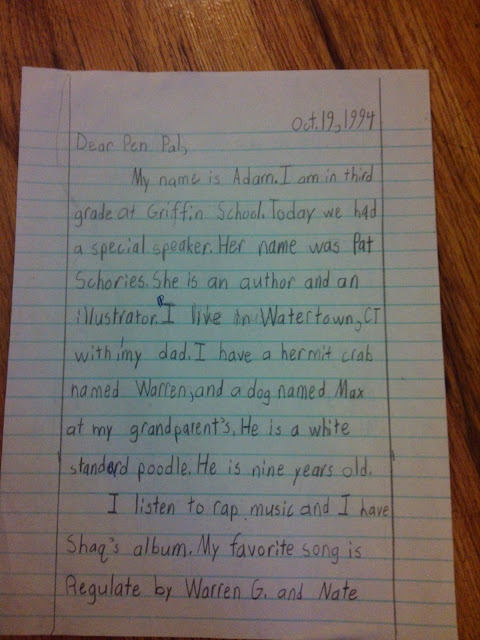 Oct.19,1994
Dear Pen Pal,
My name is Adam. I am in third
grade at Griffin School. Today we had
a special speaker. Her name was Pat
Schories. She is an author and an
illustrator. I like in Watertown, CT
with my dad. I have a hermit crab
named Warren, and a dog named Max
at my grandparent's. He is a white
standard poodle. He is nine years old.
I listen to rap music and I have
Shaq's album. My favorite song is
Regulate by Warren G. and Nate